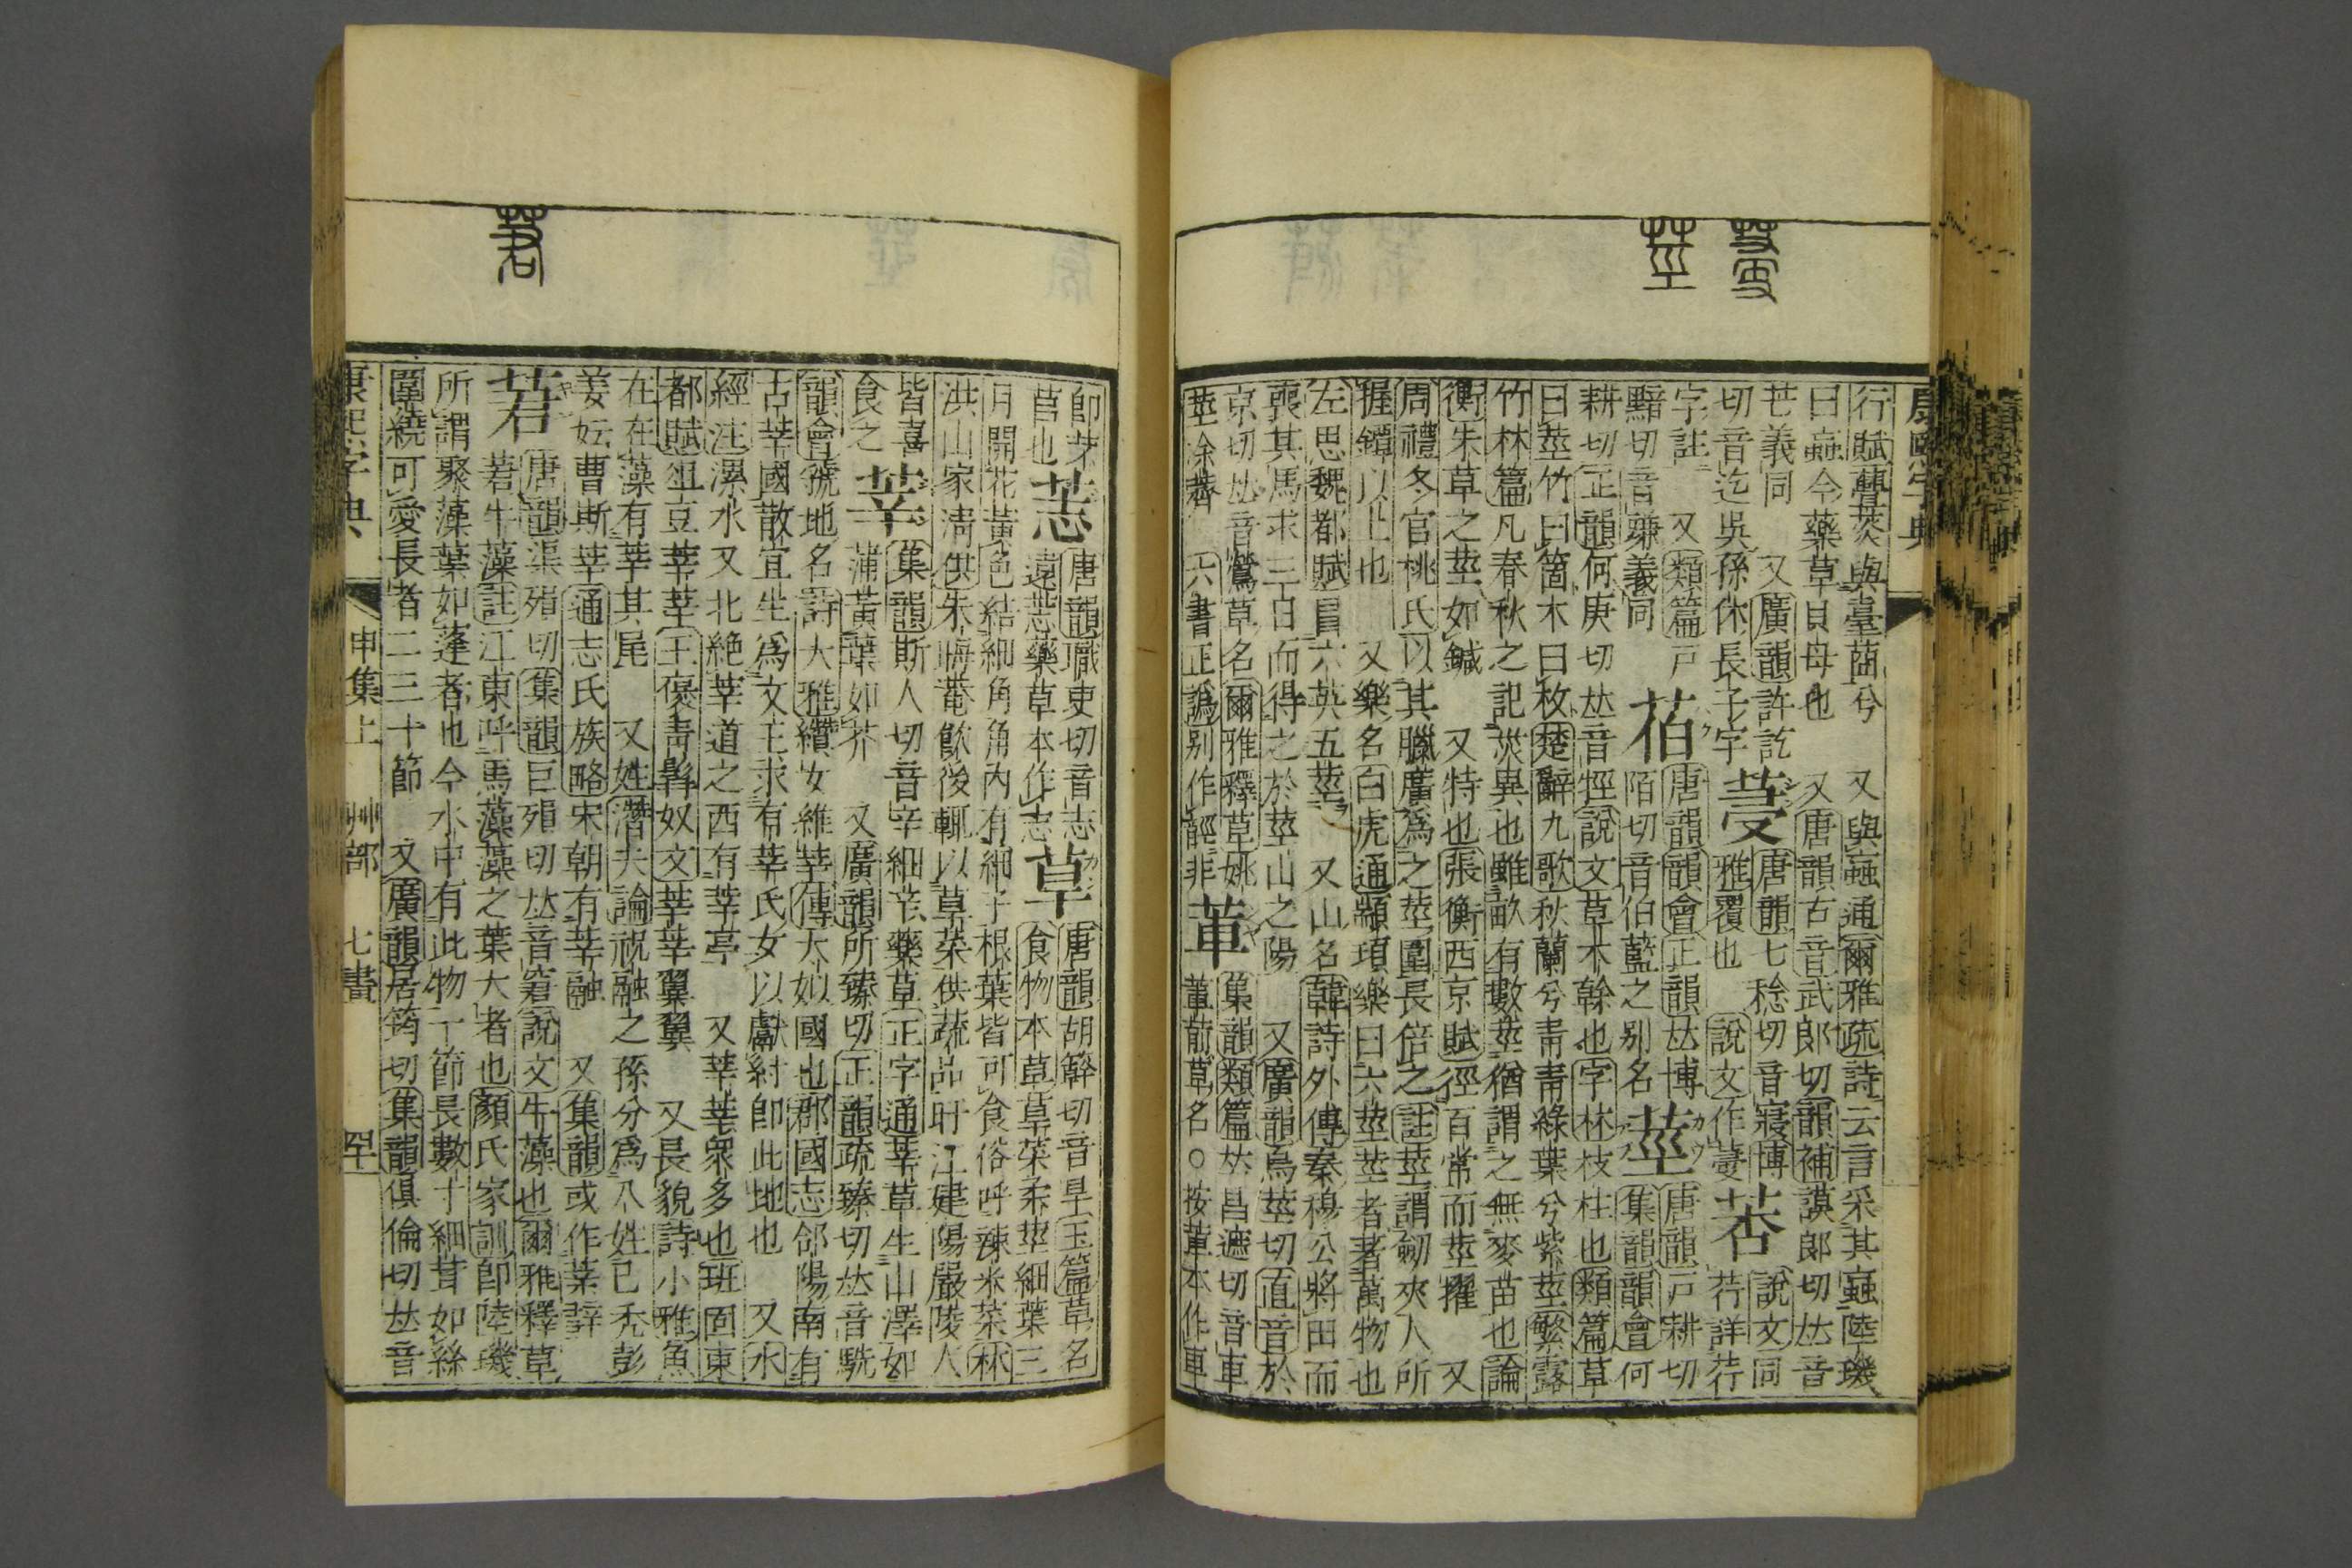 行賦藑茇與臺菌兮　又與蝱通爾雅疏詩云言采其蝱陸璣
曰蝱今藥草貝母也　又唐韻古音武郎切韻補謨郎切𠀤音
芒義同　又廣韻許訖
切音迄吳孫休長子字
字註　又類篇戸
黯切音豏義同
唐韻七稔切音寢博
雅覆也　說文作
荇　說文同
荇詳荇
莻
茎
莖
唐韻韻會正韻𠀤博
陌切音伯藍之别名
莖　唐韻戸耕切
集韻韻會何
耕切正韻何庚切𠀤音牼說文草木榦也字林枝柱也類篇草
曰莖竹曰箇木曰枚楚辭九歌秋蘭兮靑靑綠葉兮紫莖繁露
竹林篇凡春秋之記災異也雖畝有數莖猶謂之無麥苗也論
衡朱草之莖如鍼　又特也張衡西京賦徑百常而莖擢　又
周禮冬官桃氏以其臘廣爲之莖圍長倍之註莖謂劒夾人所
握鐔以上也　又樂名白虎通顓頊樂曰六莖莖者著萬物也
左思魏都賦冒六英五莖　又山名韓詩外傳秦穆公將田而
喪其馬求三日而得之於莖山之陽　又廣韻烏莖切直音於
京切𠀤音鶯草名爾雅釋草姚
莖涂薺　六書正譌别作𦶇非
莗　集韻類篇𠀤昌遮切音車
莗前草名○按莗本作車
卽芽
苢也
莣　唐韻職吏切音志
遠莣藥草本作志
䓍　唐韻胡簳切音旱玉篇草名
食物本草䓍菜柔莖細葉三
月開花黃色結細角角內有細子根葉皆可食俗呼辣米菜林
洪山家淸供朱晦菴飮後輒以䓍菜供蔬品盱江建陽嚴陵人
皆喜
食之
莘　集韻斯人切音辛細莘藥草正字通莘草生山澤如
蒲黃葉如芥　又廣韻所臻切正韻疏臻切𠀤音駪
韻會虢地名詩大雅纘女維莘傳大姒國也郡國志郃陽南有
古莘國散宜生爲文王求有莘氏女以獻紂卽此地也　又水
經注漯水又北絶莘道之西有莘亭　又莘莘衆多也班固東
都賦俎豆莘莘王褒靑髥奴文莘莘翼翼　又長貌詩小雅魚
在在藻有莘其尾　又姓潛夫論祝融之孫分爲八姓己禿彭
姜妘曹斯莘通志氏族略宋朝有莘融　又集韻或作𦯷䇷
莙　唐韻渠殞切集韻巨殞切𠀤音窘說文牛藻也爾雅釋草
莙牛藻註江東呼馬藻藻之葉大者也顏氏家訓卽陸璣
所謂聚藻葉如蓬者也今水中有此物一節長數寸細茸如絲
圍繞可愛長者二三十節　又廣韻居筠切集韻俱倫切𠀤音
康熙字典　申集上　艸部　七畫　罕